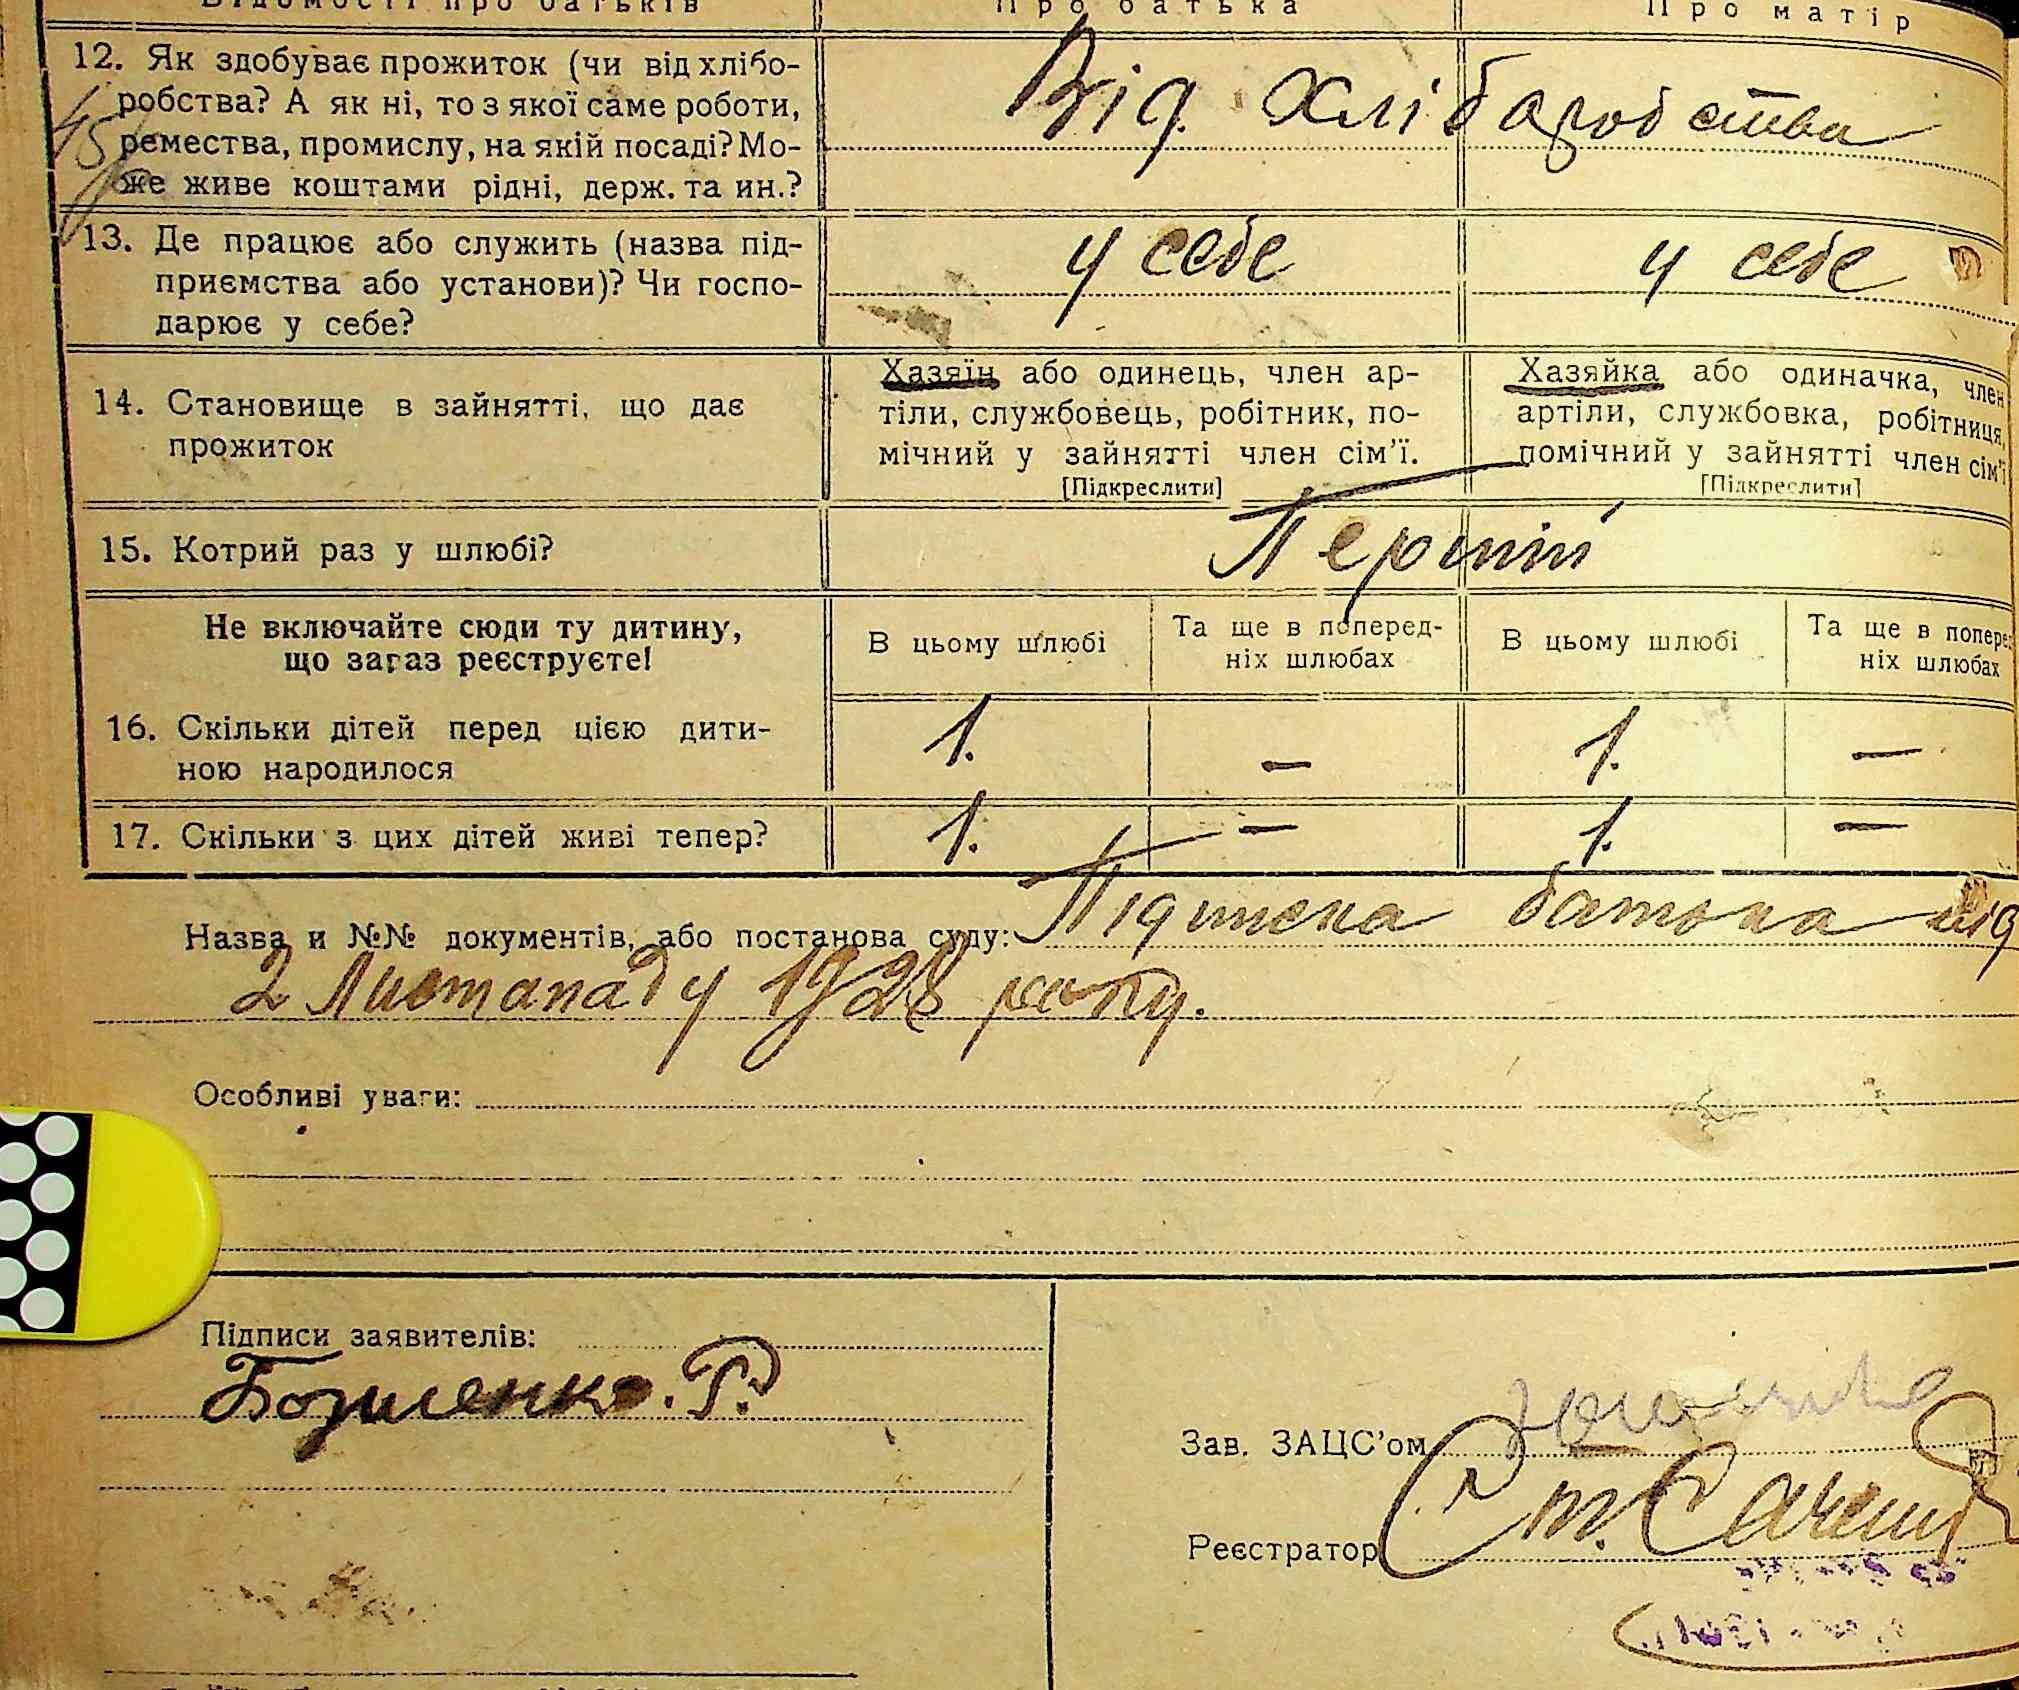 Відомості про батьків Про батька Про матір
12. Як здобуває прожиток (чи від хлібо-
робства? А як ні, то з якої саме роботи,
ремества, промислу, на якій посаді? Мо-
же живе коштами рідні, держ. та ин.?
Від хлібаробства
13. Де працює або служить (назва під-
приємства або установи)? Чи госпо-
дарює у себе?
у себе у себе
14. Становище в зайнятті, що дає
прожиток
Хазяїн або одинець, член ар-
тіли, службовець, робітник, по-
мічний у зайнятті член сім'ї.
[Підкреслити]
Хазяйка або одиначка, член
артіли, службовка, робітниця,
помічний у зайнятті член сім'ї
[Підкреслити]
15. Котрий раз у шлюбі?
Перший
Не включайте сюди ту дитину,
що зараз реєструєте!
В цьому шлюбі
Та ще в поперед-
ніх шлюбах
В цьому шлюбі
Та ще в попере
ніх шлюбах
16. Скільки дітей перед цією дити-
ною народилося
1. — 1. —
17. Скільки з цих дітей живі тепер? 1. — 1. —
Назва и №№ документів, або постанова суду: Підписка батька від
2 Листападу 1928 року.
Особливі уваги:
Підписи заявителів:
Зав. ЗАЦС'ом
Реєстратор Ст.